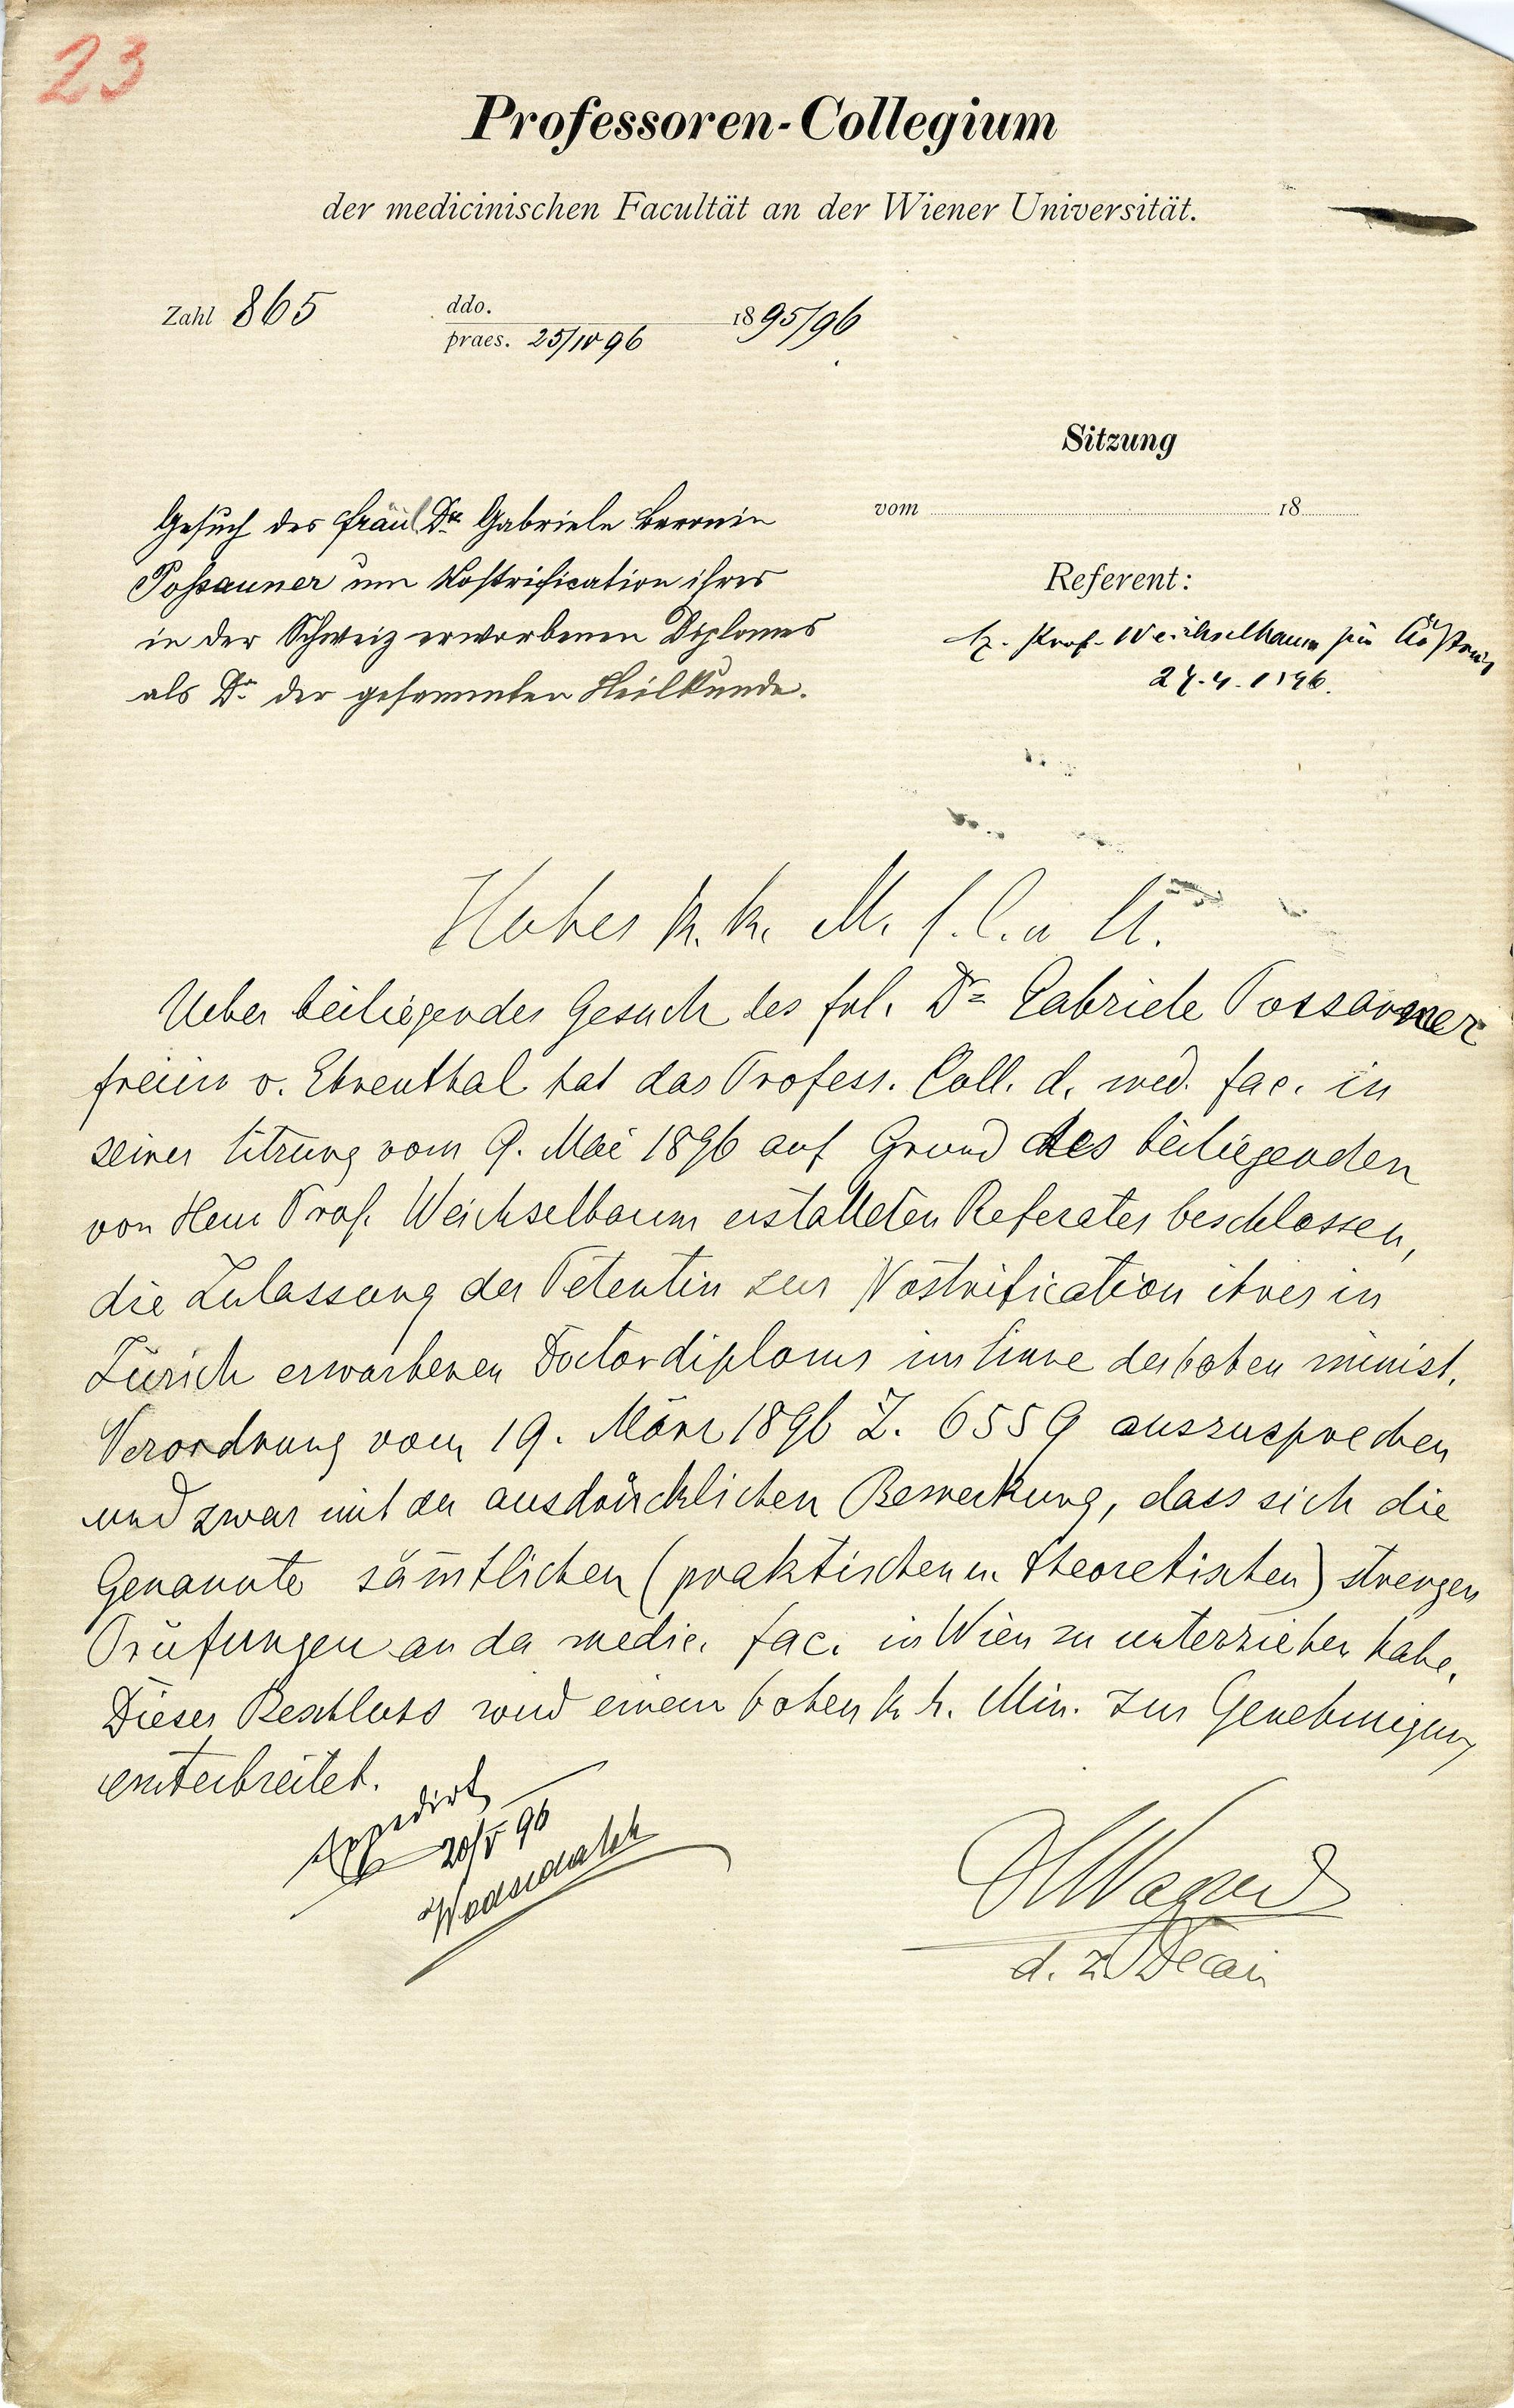 23
Professoren-Collegium
der medicinischen Facultät an der Wiener Universität.
Zahl 865
ddo.
praes. 25/IV 96
1895/96
Sitzung
vom 18
Gesuch des Fräul. Dr. Gabriele Baronin
Possanner um Nostrification ihres
in der Schweiz erworbenen Diplomes
als Dr. der gesammten Heilkunde.
Referent:
Prof. Weichselbaum
27.4.1896.
Hohes k. k. M. f. C. u U.
Ueber beiliegendes Gesuch des Frl. Dr Gabriele Possanner
Freiin v. Ehrenthal hat das Profess. Coll. d. med. Fac. in
seiner Sitzung vom 9. Mai 1896 auf Grund des beiliegenden
von Herrn Prof. Weichselbaum erstatteten Referates beschlossen,
die Zulassung der Petentin zur Nostrification ihres in
Zürich erworbenen Doctordiploms im Sinne der hohen minist.
Verordnung vom 19. März 1896 Z. 6559 auszusprechen
und zwar mit der ausdrücklichen Bemerkung, dass sich die
Genannte sämmtlichen (praktischen u. theoretischen) strengen
Prüfungen an der medic. Fac. in Wien zu unterziehen habe.
Dieser Beschluss wird einem hohen k. k. Min. zur Genehmigung
unterbreitet.
Expedirt
20/V 96
d. z. Decan